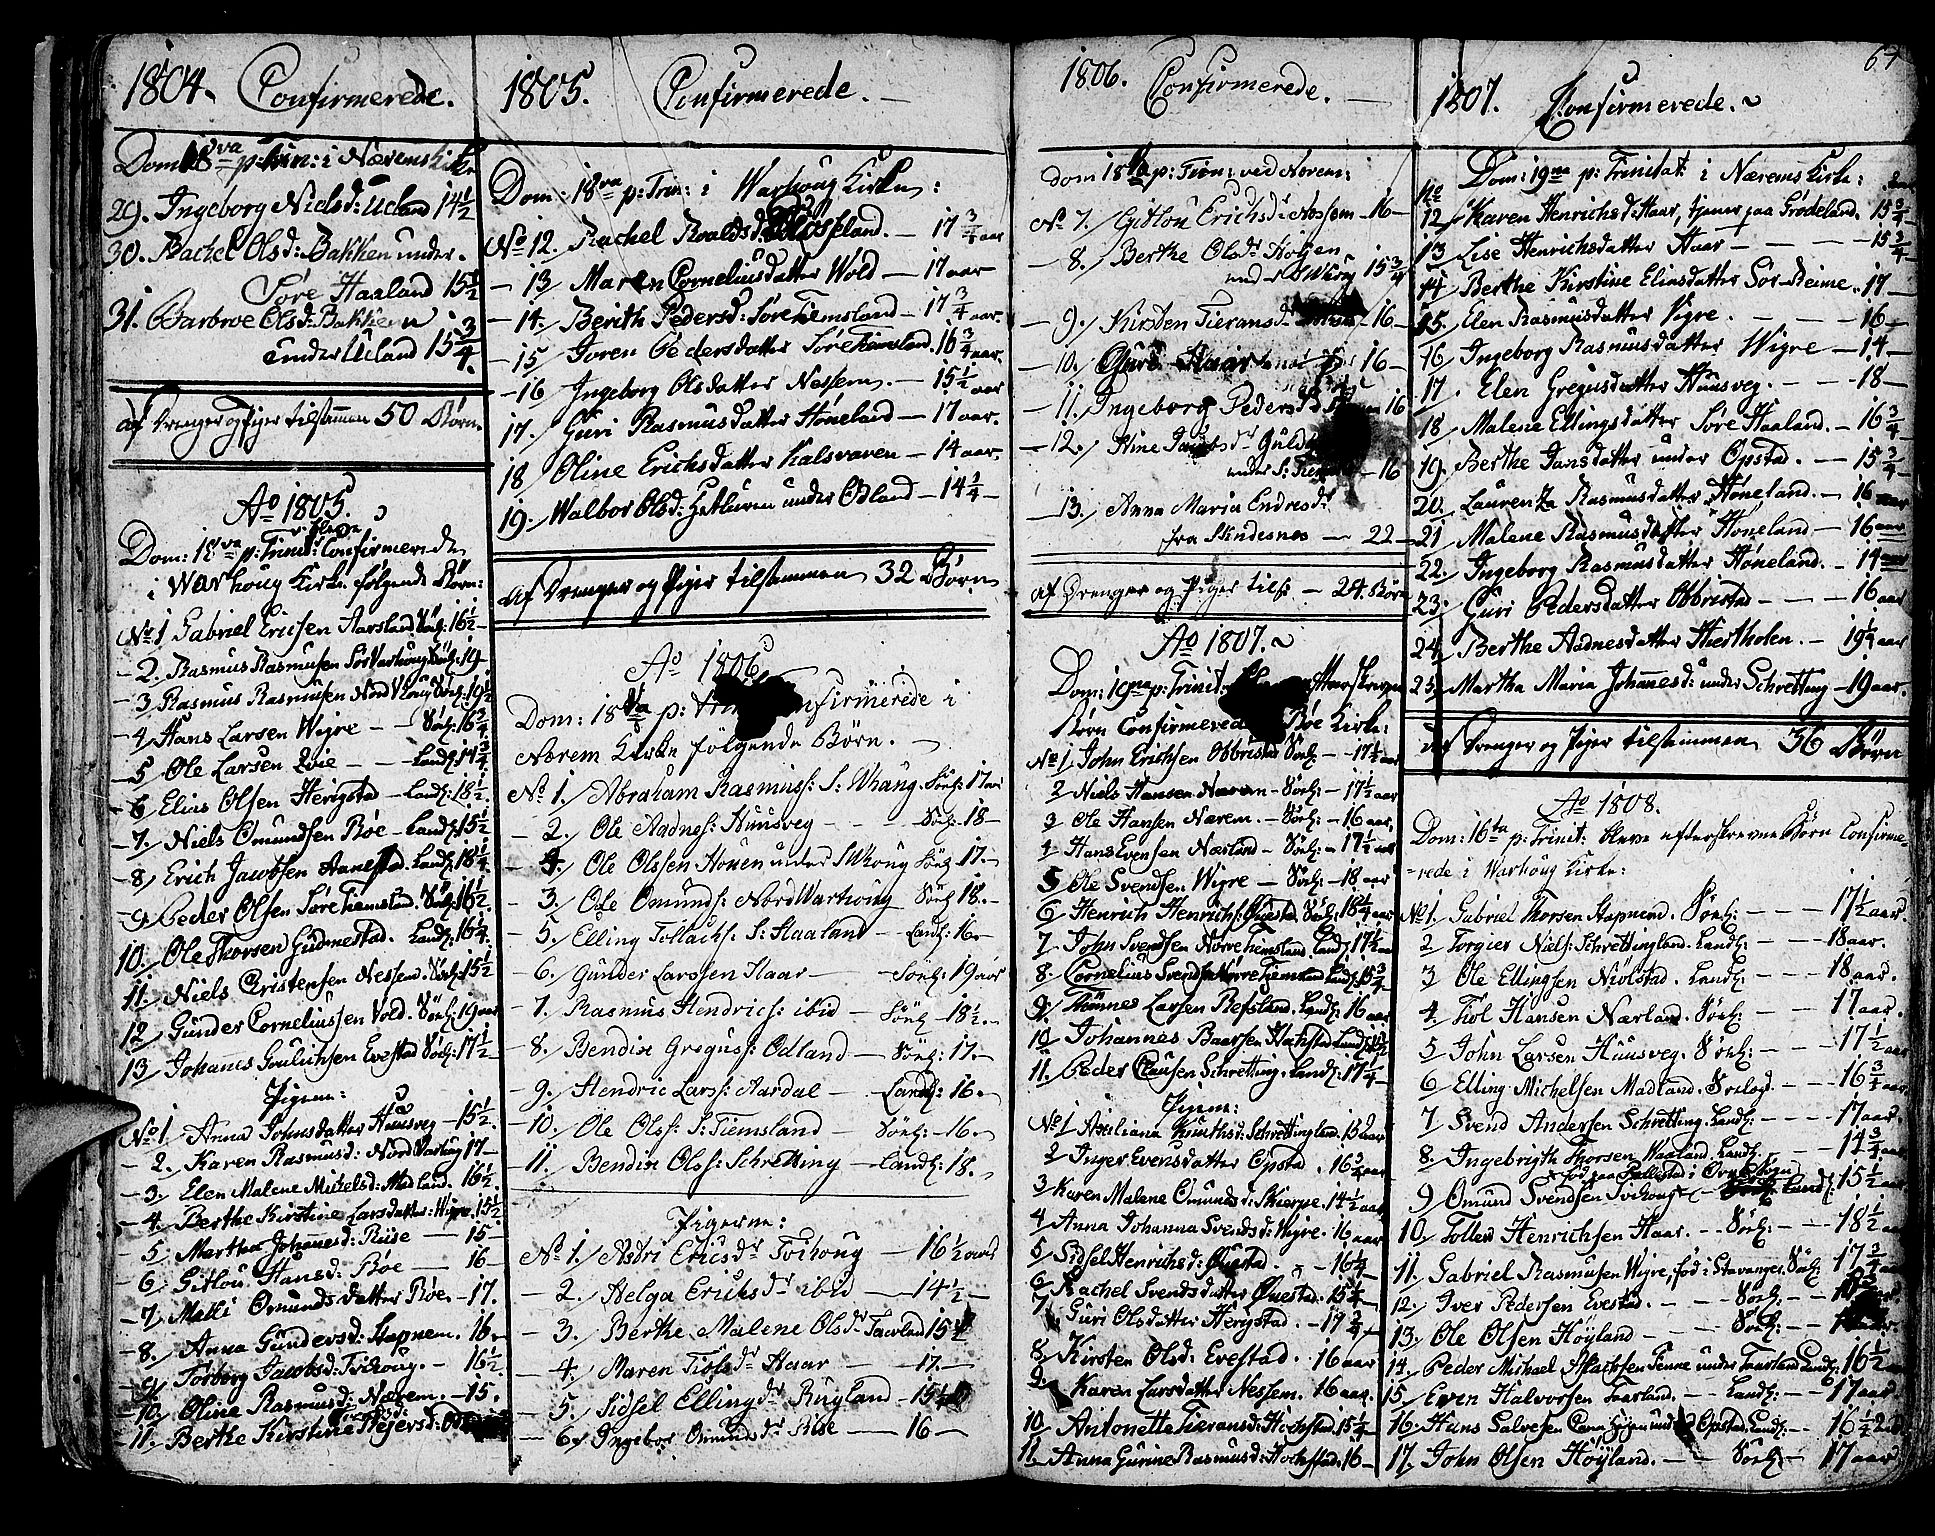 1804. Confirmerede.
Dom 18va p: Trin: i Nærems Kirke
29. Ingeborg Nielsd: Ueland 14 1/2
30. Rachel Olsd: Bakken under
Søre Haaland 15 1/2
31. Barbroe Olsd: Bakken
under Ueland 15 3/4.
af Drenger og Piger tilsammen 50 Børn.
Ao 1805.
Dom: 18va p: Trinit: bleve Confirmerede
i Warhoug Kirke følgende Børn:
No 1 Gabriel Ericsen Aarsland Søel: 16 1/2
2. Rasmus Rasmusen Sør Varhoug Søel: 19
3 Rasmus Rasmusen Nord Vhoug Søel: 19 1/2
4 Hans Larsen Wigre Søel: 16 3/4
5 Ole Larsen Landl: 17 3/4
6 Elias Olsen Herigstad Landl: 18 1/2
7. Niels Omundsen Røe Landl: 15 1/2
8 Erich Jacobsen Landl: 18 1/4
9 Peder Olsen Søre Tiemsland. Søel: 16 1/2
10. Ole Thorsen Gudmestad. Landl: 16 1/4
11. Niels Cristensen Nessem. Søel: 15 1/2
12 Gunder Corneliussen Vold. Søel: 19 aar
13 Johannes Evestad Søel: 17 1/2
Pigerne:
No 1 Anna Johnsdatter Huusveg 15 1/2
2. Karen Rasmusd: Nord Varhug 17
3. Elen Malene Mickelsd: Madland. 16 1/2
4. Berthe Kirstine Larsdatter: Wigre. 15 1/2
5 Martha Johannesd: Riise 15
6 Gitlou Hansd: Røe 16
7 Metti Omundsdatter Røe 17.
8. Anna Gundersd: Hapnem. 16
9. Torborg Jacobsd: Tvihoug. 16 1/2
10 Oline Rasmusd: Nærem. 15.
11. Berthe Kirstine
1805. Confirmerede.
Dom: 18va p: Trin: i Warhoug Kirke:
No 12. Rachel Roaldsd 17 3/4 aar
13 Maren Corneliusdatter Wold 17 aar
14. Berith Pedersd: Søre Tiemsland 17 3/4 aar.
15 Joren Pedersdatter Søre Tiemsland. 16 3/4 aar.
16 Ingeborg Olsdatter Nessem. 15 1/2 aar
17. Guri Rasmusdatter Høneland 17 aar.
18 Oline Erichsdatter Kalsvaren 14 aar.
19. Walbor Olsd: under Odland 14 3/4
af Drenger og Piger tilsammen 32 Børn
Ao 1806
Dom: 18va p: Confirmerede i
Nærem Kirke følgende Børn.
No 1. Abraham Rasmuss: S: Whaug. Søel: 17 aar
2. Ole Aadnes: Huusveg Søel: 18
4. Ole Olssen Houen under S Whoug Søel 17.
3. Ole Omunds: Nord Warhoug Søel 18.
5. Elling Tollachs: S: Haaland Landl: 16.
6. Gunder Larssen Haar Søel: 19 aar
7. Rasmus Hendrics: ibid Søel 18 1/2.
8. Bendix Greguss: Odland Søel: 17.
9. Hendric Larss: Aardal Landl: 16.
10. Ole Olss: S: Tiemsland Søel: 16.
11. Bendix Olss: Schretting Landl: 18.
Pigerne:
No 1. Asdri Ericsdr Tvihoug 16 1/2 aar
2. Helga Erichsdr ibid 14 1/2
3. Berthe Malene Olsdr Taarland 15 1/2
4. Maren Tiølsdr Haar 17.
5. Sidsel Ellingdr Rugland 15 1/2
6. Ingebor Omundsdr Riise 16
1806. Confirmerede.
Dom 18va p: Trin: ved Nærem:
No 7. Gidlou Erichsd: Nessem 16
8. Berthe Olsdr Holgen
under S Whoug 15 3/4
9. Kirsten Tieransd 16
10. Guri Haar 16
11. Ingeborg Pedersd 16
12. Stine
under S: 16
13. Anna Maria Endresdr
fra Skudesnes 22
af Drenger og Piger tils 24. Børn
Ao 1807.
Dom: 19na p: Trinit: efterskrevne
Børn Confirmerede Røe Kirke:
No 1 John Erichsen Obbrestad Søel: 17 1/2 aar
2 Niels Hansen Nærem Søel: 17 1/2 aar
3 Ole Hansen Nærem. Søel: 16 aar.
4 Hans Evensen Nærland Søel: 17 1/2 aar
5 Ole Svendsen Wigre Søel: 18 aar
6 Henrich Henrichs: Qvestad. Søel: 18 1/4 aar
7 John Svendsen Nørre Tiemsland. Landl: 17 1/2 aar
8 Cornelius Svendsen Nørre Tiemsland Landl: 15 3/4
9 Tønnes Larsen Refsland. Landl: 16 aar
10 Johannes Baarsen Hochstad Landl:
11. Peder Clausen Schretting. Landl: 17 1/4
Pigerne:
No 1 Axeliana Knuthsd: Schrettingland.
2 Inger Evensdatter Opstad. 16 3/4 aar
3 Karen Malene Omundsd: Skierpe. 14 1/2 aar
4 Anna Johanna Svendsd: Wigre. 16 aar
5 Sidsel Henrichsd: Qvestad. 16 1/4
6 Rachel Svendsdatter Qvestad. 15 1/4
7 Guri Olsdatter Herigstad. 17 3/4
8 Kirsten Olsd: Evestad. 16 aar
9. Karen Larsdatter Nessem. 16 aar.
10. Antonette Tieransd: Hochstad. 15 1/4
11. Anna Gurine Rasmusd: Hochstad. 16
67
1807. Confirmerede.
Dom: 19na p: Trinitat: i Nærems Kirke:
No 12 Karen Henrichsd: Haar, tiener paa Grødeland. 15 3/4
13 Lise Henrichsdatter Haar 15 3/4
14 Berthe Kirstine Eliasdatter Sør-Reime. 17
15. Elen Rasmusdatter Vigre. 16
16 Ingeborg Rasmusdatter Wigre 14
17. Elen Gregusdatter Huusveg. 18
18 Malene Ellingsdatter Søre Haaland. 16 3/4
19. Berthe Jansdatter under Opstad. 15 3/4
20. Laurentza Rasmusdatter Høneland. 16 aar
21 Malene Rasmusdatter Høneland 16 aar
22. Ingeborg Rasmusdatter Høneland. 14 aar
23. Guri Pedersdatter Obbristad 16 aar
24. Berthe Aadnesdatter Hertholen. 19 1/4 aar
25. Martha Maria Johannesd: under Schretting 19 aar.
af Drenger og Piger tilsammen 36 Børn
Ao 1808.
Dom: 16ta p: Trinit: bleve efterskrevne Børn Confirme-
rede i Warhoug Kirke:
No 1. Gabriel Thorsen Hapnem. Søel: 17 1/2 aar.
2 Torgier Niels: Schrettingland. Landl: 18 aar.
3 Ole Ellingsen Niølstad. Landl: 18 aar.
4. Tiøl Hansen Nærland. Søel: 17 aar
5 John Larsen Huusveg. Søel: 17 1/2 aar
6 Elling Michelsen Madland. Søelogd 16 3/4 aar.
7 Svend Andersen Schretting. Landl: 17 aar
8 Ingebrigth Thorsen Waaland. Landl: 14 3/4 aar
9 Omund Svendsen Tvihoug Landl: 15 1/2 aar
10. Tollew Henrichsen Haar. Søel: 18 1/2 aar
11. Gabriel Rasmusen Wigre, fød i Stavanger. Søel: 17 3/4 aar
12. Iver Pedersen Evestad. Søel:
13. Ole Olsen Høyland Søel:
14. Peder Michael under Taarland Landl: 16 1/2 aar
15. Even Halvorsen Taarland. Landl: 17 aar
16. Hans Salvesen under Opstad. Landl: 16 1/2
17. John Olsen Høyland. Søel: 17 aar